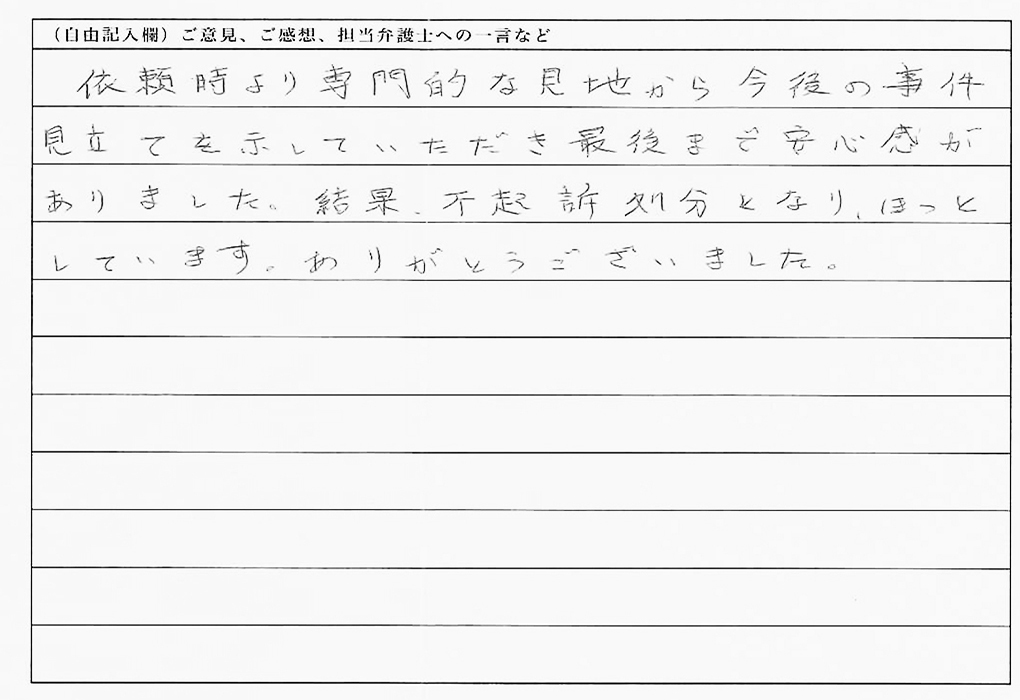 （自由記入欄）ご意見、ご感想、担当弁護士への一言など
依頼時より専門的な見地から今後の事件
見立てを示していただき最後まで安心感が
ありました。結果、不起訴処分となり、ほっと
しています。ありがとうございました。